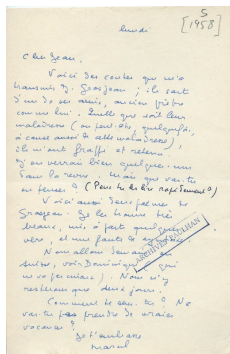 lundi
5
[1958]
Cher Jean,
Voici des contes que m'a
transmis J. Grosjean ; ils sont
d'un de ses amis, ancien prêtre
comme lui. Quelle que soit leur
maladresse (ou peut-être, quelquefois,
à cause aussi de cette maladresse),
ils m'ont frappé et retenu.
J'en verrais bien quelques-uns
dans la revue. Mais que vas-tu
en penser ? (Peux-tu les lire rapidement ?)
Voici aussi des poèmes de
Grosjean. Je les trouve très
beaux, mis à part quelques
vers, et une faute de
ARCHIVES PAULHAN
Nous allons demain en
Suisse, voir Dominique (qui
va se fermière). Nous n'y
resterons que deux jours.
Comment te sens-tu ? Ne
vas-tu pas prendre de vraies
vacances ?
Je t'embrasse
Marcel